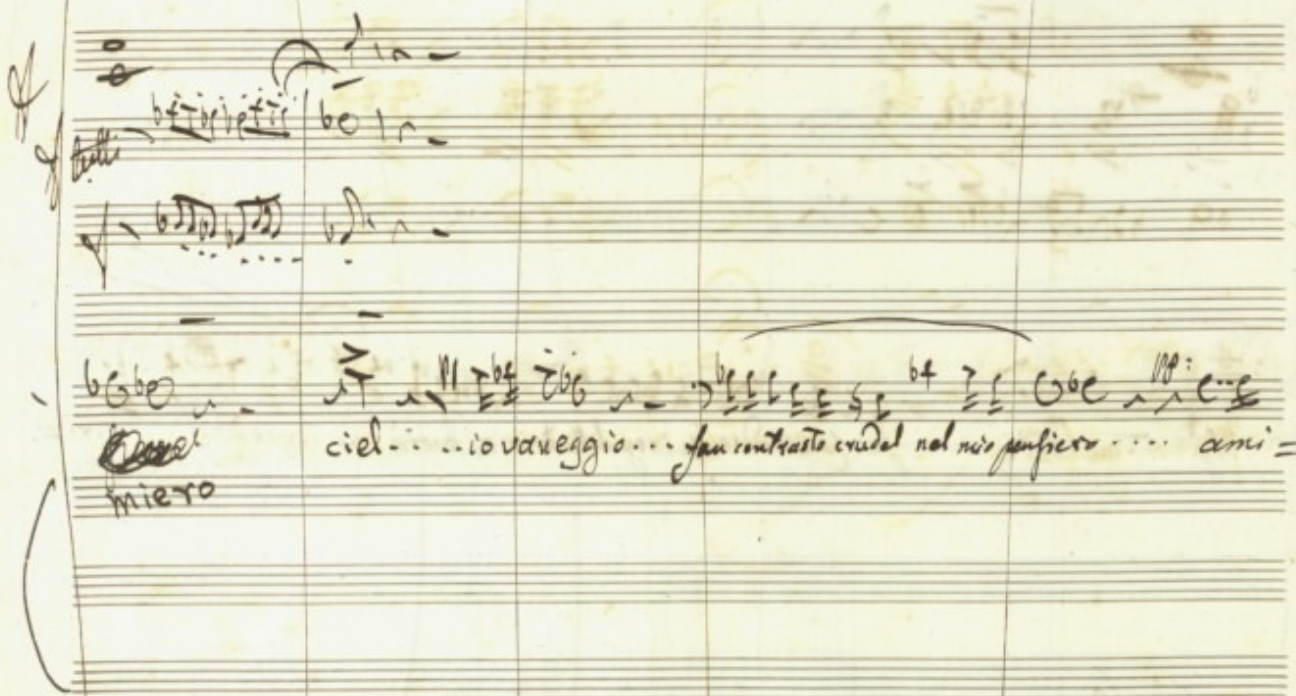 tutti
ciel.....io vaneggio... fan contrasto crudel nel mio pensiero..... ami=
miero